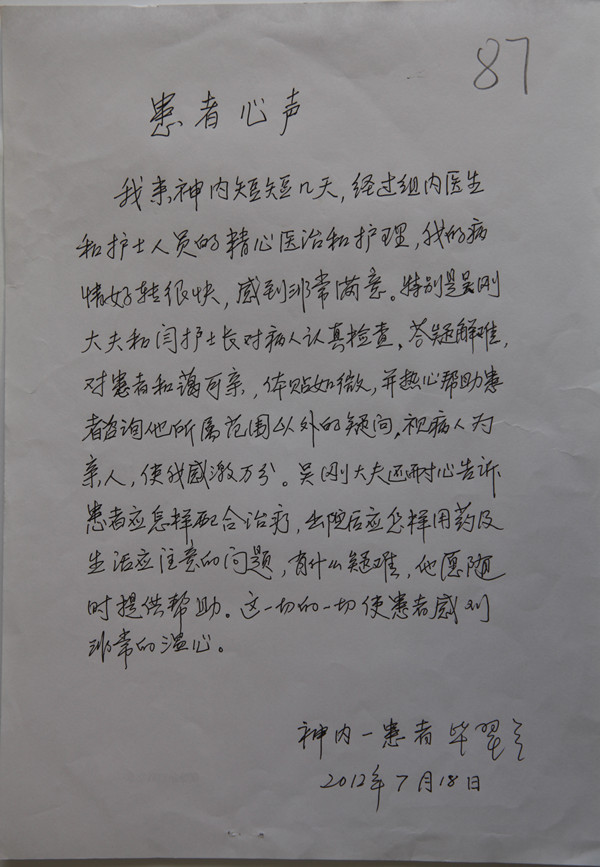 87
患者心声
我来神内短短几天，经过组内医生
和护士人员的精心医治和护理，我的病
情好转很快，感到非常满意。特别是吴刚
大夫和闫护士长对病人认真检查，答疑解难，
对患者和蔼可亲，体贴如微，并热心帮助患
者咨询他所属范围以外的疑问，视病人为
亲人，使我感激万分。吴刚大夫还耐心告诉
患者应怎样配合治疗，出院后应怎样用药及
生活应注意的问题，有什么疑难，他愿随
时提供帮助。这一切的一切使患者感到
非常的温心。
神内一患者 毕翠
2012年7月18日